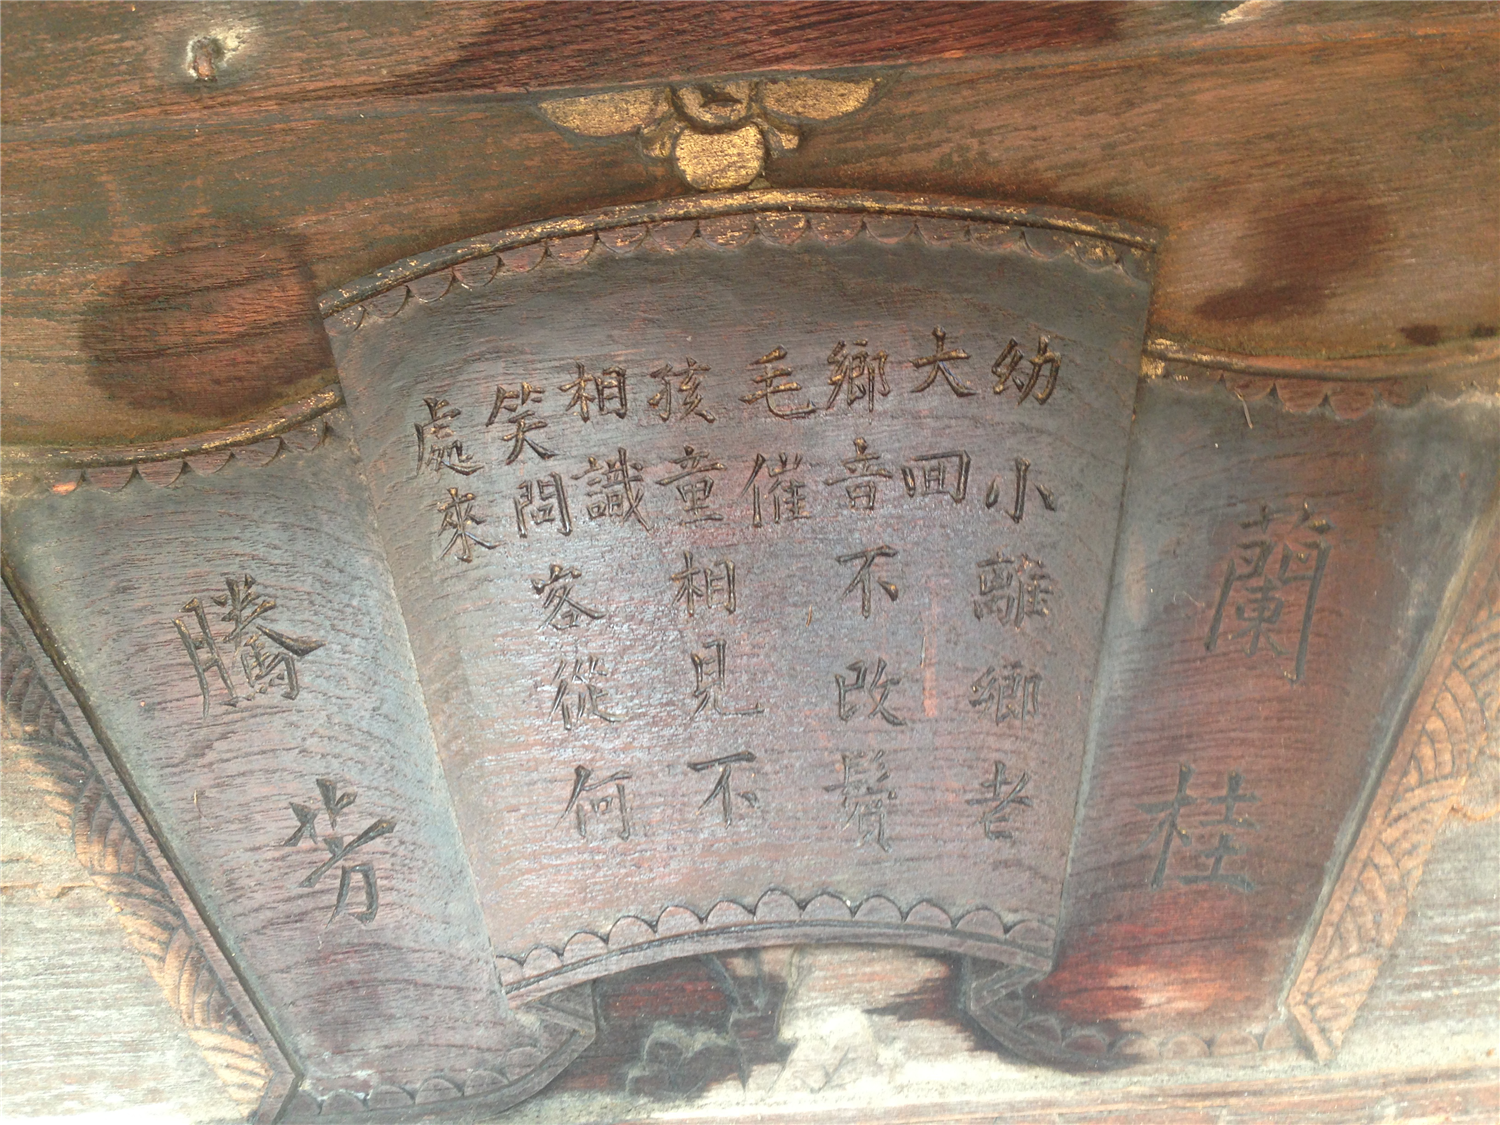 蘭桂
幼小離鄉老
大囬
鄉音不改鬢
毛催
孩童相見不
相識
笑問客從何
處來
騰芳